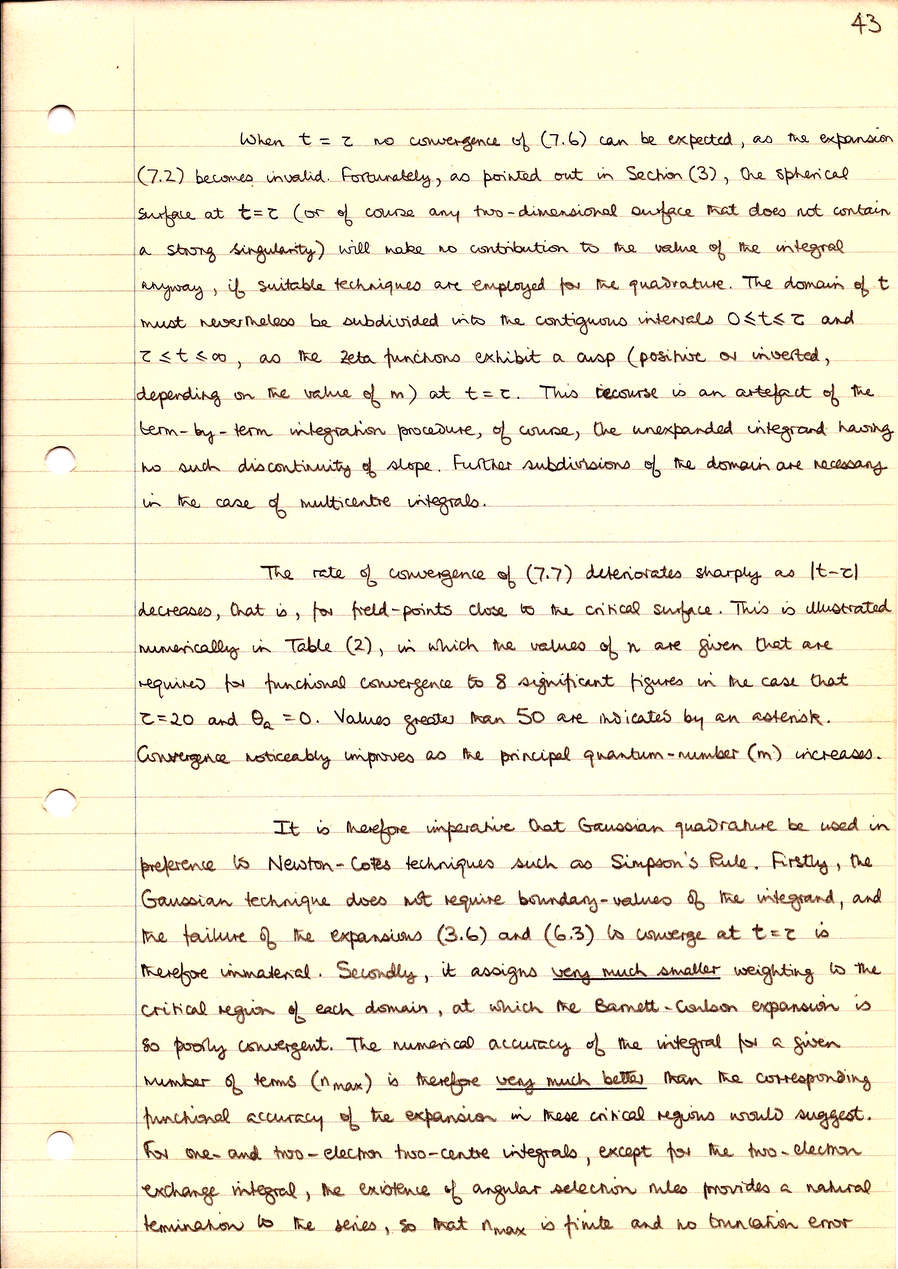 43
When t = τ no convergence of (7.6) can be expected, as the expansion
(7.2) becomes invalid. Fortunately, as pointed out in Section (3), the spherical
surface at t=τ (or of course any two-dimensional surface that does not contain
a strong singularity) will make no contribution to the value of the integral
anyway, if suitable techniques are employed for the quadrature. The domain of t
must nevertheless be subdivided into the contiguous intervals 0≤t≤τ and
τ≤t≤∞, as the zeta functions exhibit a cusp (positive or inverted,
depending on the value of m) at t=τ. This recourse is an artefact of the
term-by-term integration procedure, of course, the unexpanded integrand having
no such discontinuity of slope. Further subdivisions of the domain are necessary
in the case of multicentre integrals.
The rate of convergence of (7.7) deteriorates sharply as |t-τ|
decreases, that is, for field-points close to the critical surface. This is illustrated
numerically in Table (2), in which the values of n are given that are
required for functional convergence to 8 significant figures in the case that
τ=20 and θₐ = 0. Values greater than 50 are indicated by an asterisk.
Convergence noticeably improves as the principal quantum-number (m) increases.
It is therefore imperative that Gaussian quadrature be used in
preference to Newton-Cotes techniques such as Simpson's Rule. Firstly, the
Gaussian technique does not require boundary-values of the integrand, and
the failure of the expansions (3.6) and (6.3) to converge at t=τ is
therefore immaterial. Secondly, it assigns very much smaller weighting to the
critical region of each domain, at which the Barnett-Coulson expansion is
so poorly convergent. The numerical accuracy of the integral for a given
number of terms (n max) is therefore very much better than the corresponding
functional accuracy of the expansion in these critical regions would suggest.
For one- and two-electron two-centre integrals, except for the two-electron
exchange integral, the existence of angular selection rules provides a natural
termination to the series, so that n max is finite and no truncation error